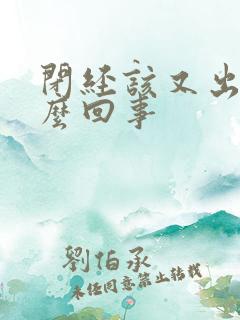 閉經該又出
麼回事
劉伯承
未經同意禁止轉載